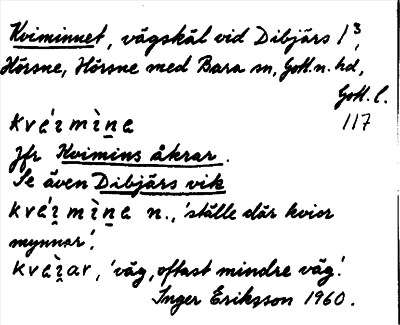 Kviminnet, vägskäl vid Dibjärs 1³,
Hörsne, Hörsne med Bara sn, Gotl. n. hd,
Gotl. l.
117
kvéi̯mìnɐ
Jfr Kvimins åkrar.
Se även Dibjärs vik
kvéi̯mìnɐ n., 'ställe där kvior
mynnar'.
kvèi̯ar, 'väg, oftast mindre väg'.
Inger Eriksson 1960.